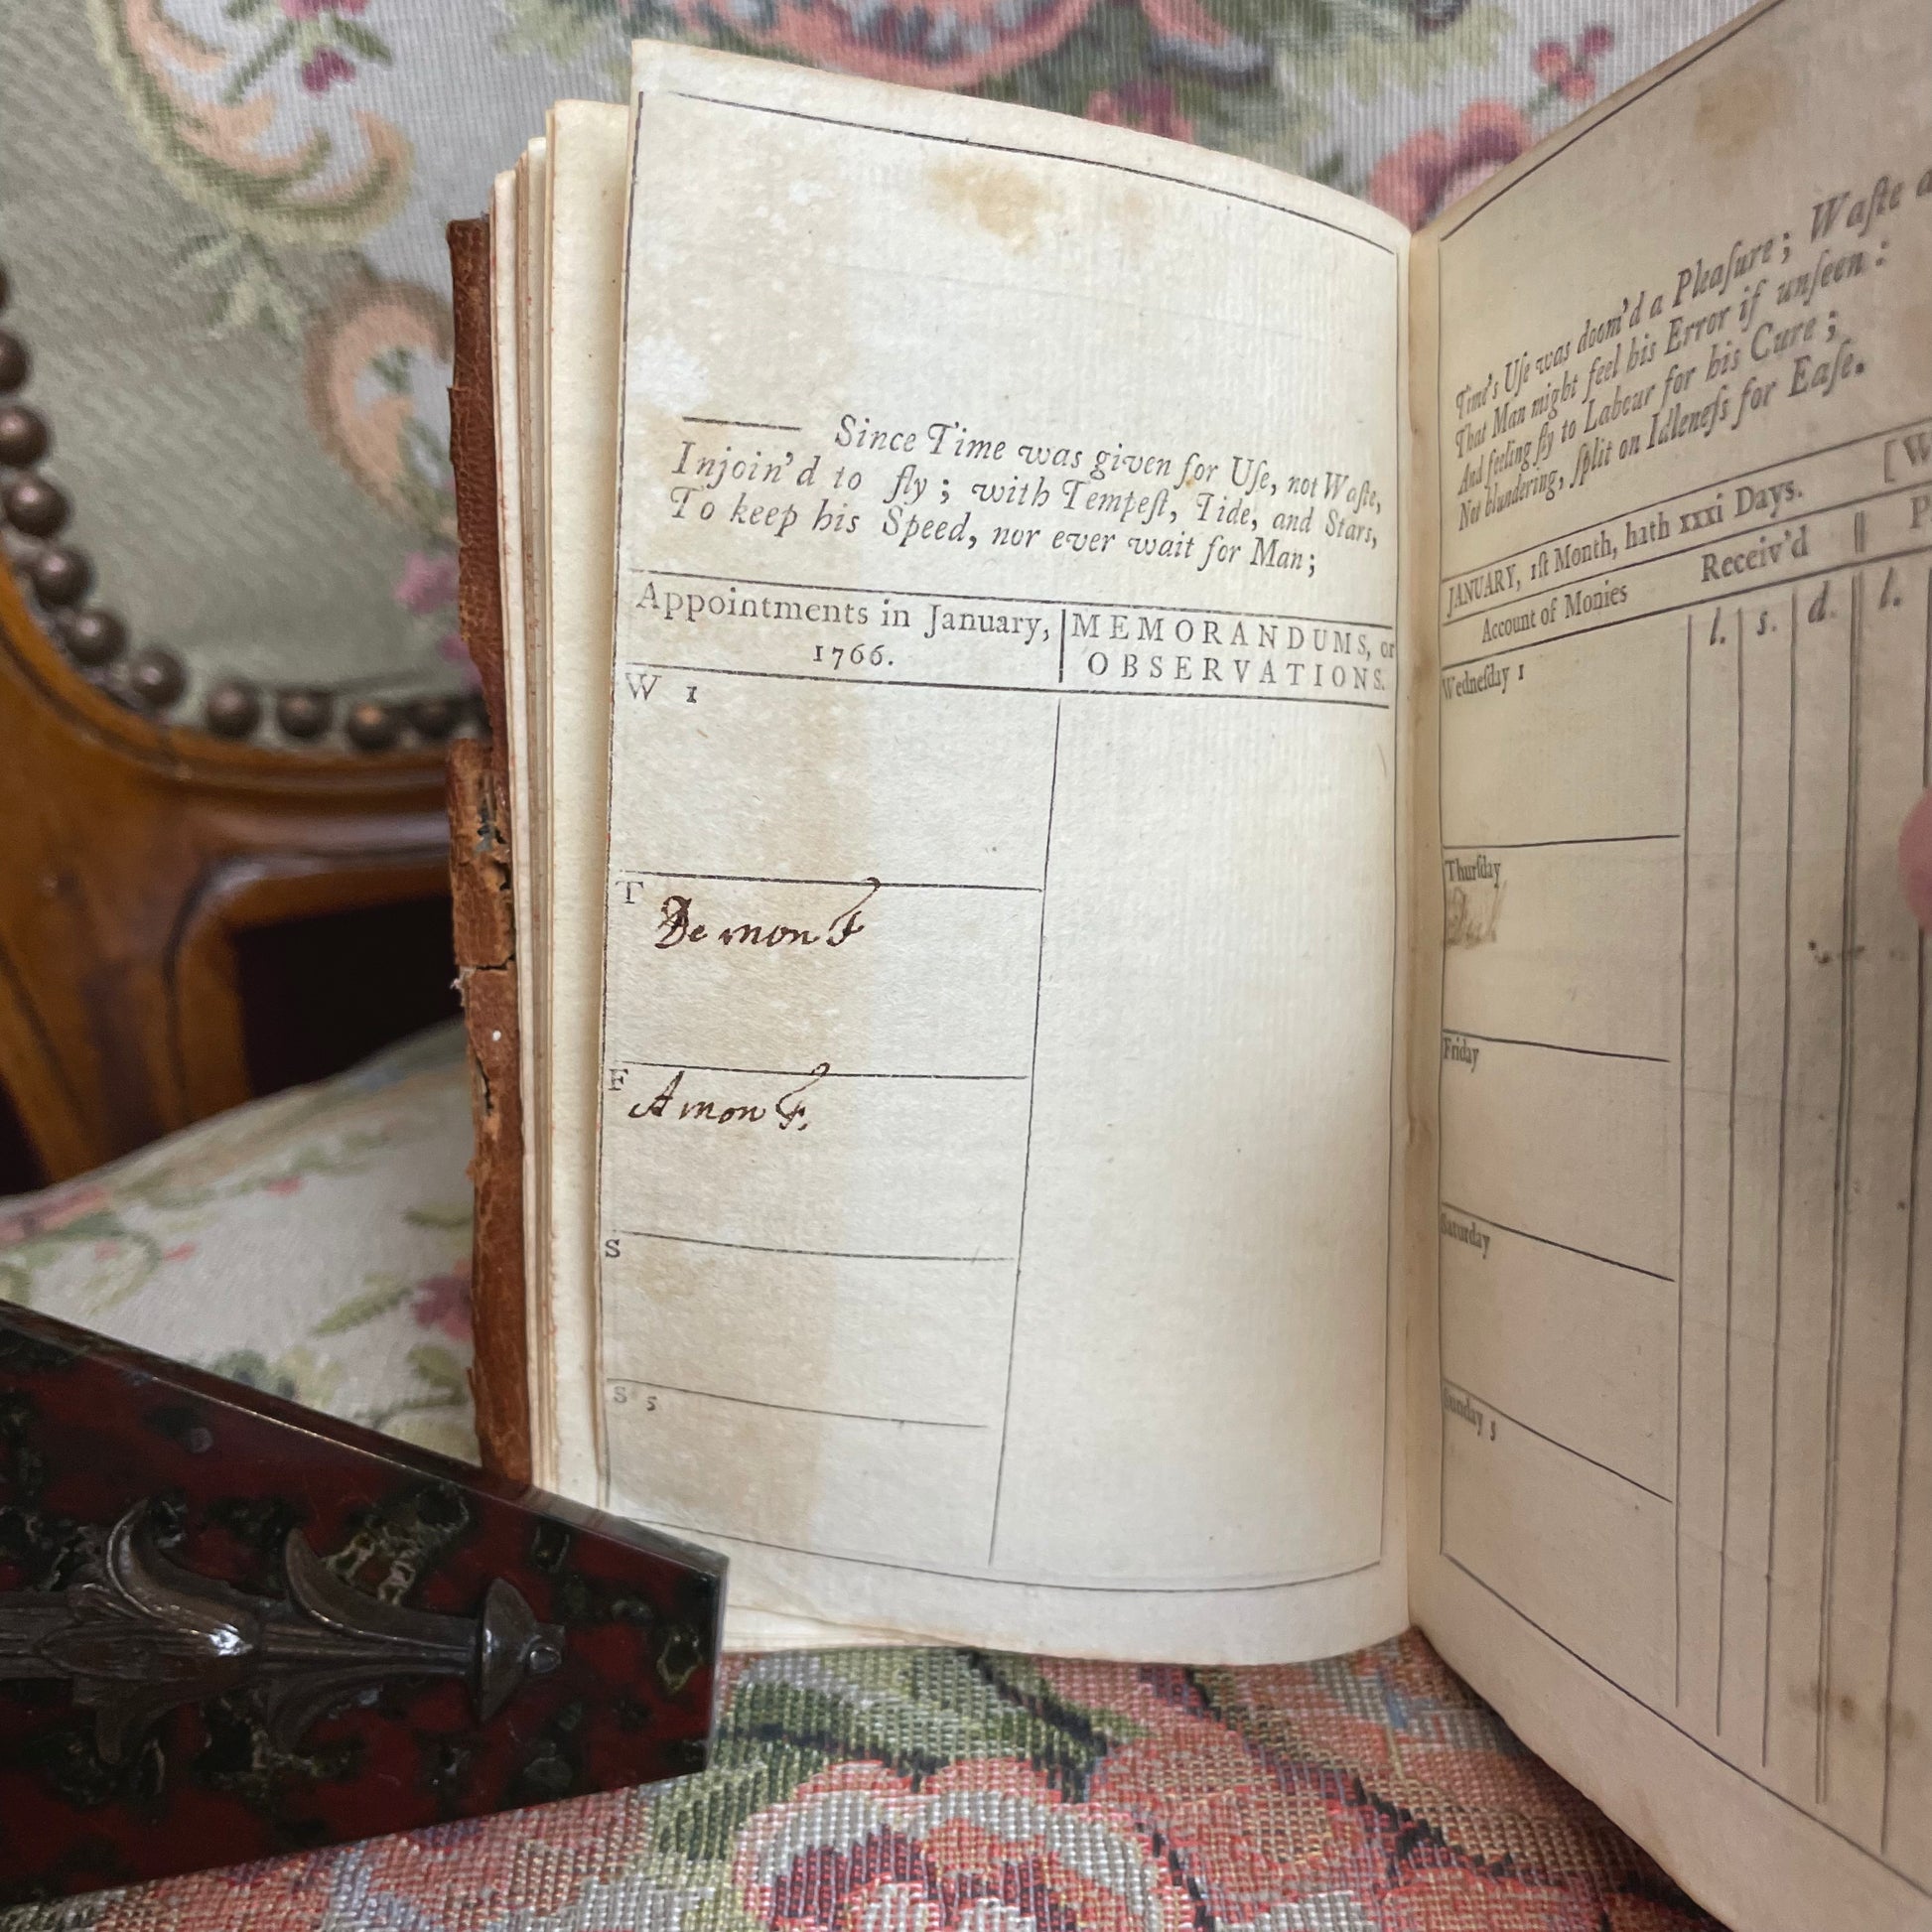 —— Since Time was given for Uſe, not Waſte,
Injoin'd to fly; with Tempeſt, Tide, and Stars,
To keep his Speed, nor ever wait for Man;
Appointments in January,
1766.
MEMORANDUMS, or
OBSERVATIONS.
W 1
T
De mon F
F
A mon F.
S
S 5
Time's Uſe was doom'd a Pleaſure; Waſte
That Man might feel his Error if unſeen:
And feeling fly to Labour for his Cure;
Not blundering, ſplit on Idleneſs for Eaſe.
JANUARY, 1ſt Month, hath xxxi Days. [W
Account of Monies
Receiv'd
l. s. d. l.
Wedneſday 1
Thurſday
Friday
Saturday
Sunday 5